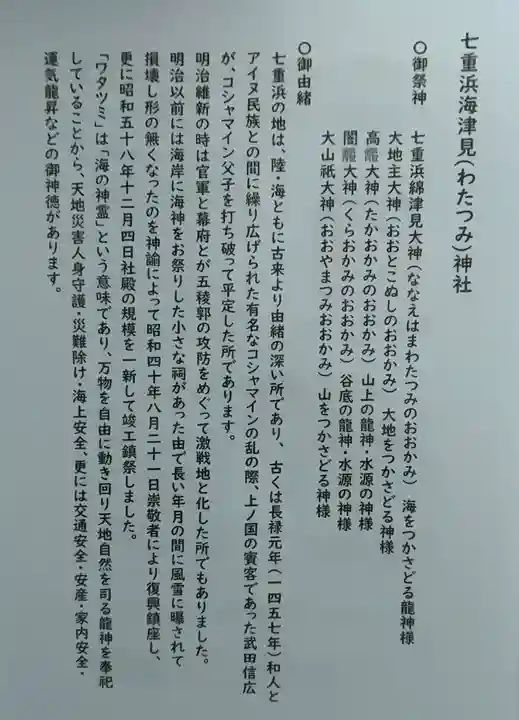 七重浜海津見(わたつみ)神社
〇御祭神　七重浜綿津見大神(ななえはまわたつみのおおかみ)　海をつかさどる龍神様
大地主大神(おおとこぬしのおおかみ)　大地をつかさどる神様
高龗大神(たかおかみのおおかみ)　山上の龍神・水源の神様
闇龗大神(くらおかみのおおかみ)　谷底の龍神・水源の神様
大山祇大神(おおやまつみおおかみ)　山をつかさどる神様
〇御由緒
七重浜の地は、陸・海ともに古来より由緒の深い所であり、古くは長禄元年(一四五七年)和人と
アイヌ民族との間に繰り広げられた有名なコシャマインの乱の際、上ノ国の賓客であった武田信広
が、コシャマイン父子を打ち破って平定した所であります。
明治維新の時は官軍と幕府とが五稜郭の攻防をめぐって激戦地と化した所でもありました。
明治以前には海岸に海神をお祭りした小さな祠があった由で長い年月の間に風雪に曝されて
損壊し形の無くなったのを神諭によって昭和四十年八月二十一日崇敬者により復興鎮座し、
更に昭和五十八年十二月四日社殿の規模を一新して竣工鎮祭しました。
「ワタツミ」は「海の神霊」という意味であり、万物を自由に動き回り天地自然を司る龍神を奉祀
していることから、天地災害人身守護・災難除け・海上安全、更には交通安全・安産・家内安全・
運気龍昇などの御神徳があります。